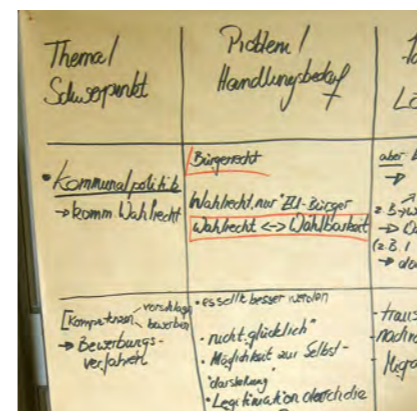 Thema/
Schwerpunkt
Problem/
Handlungsbedarf
• Kommunalpolitik
→ komm. Wahlrecht
Bürgerrecht
Wahlrecht nur EU-Bürger
Wahlrecht <-> Wahlbarkeit
aber
z.B.
(z.B.
[Kompetenzen vorschlagen
bewerben
→ Bewerbungs-
verfahren
• es sollte besser werden
• "nicht glücklich"
• Möglichkeit zur Selbst-
darstellung"
• Legitimation durch die